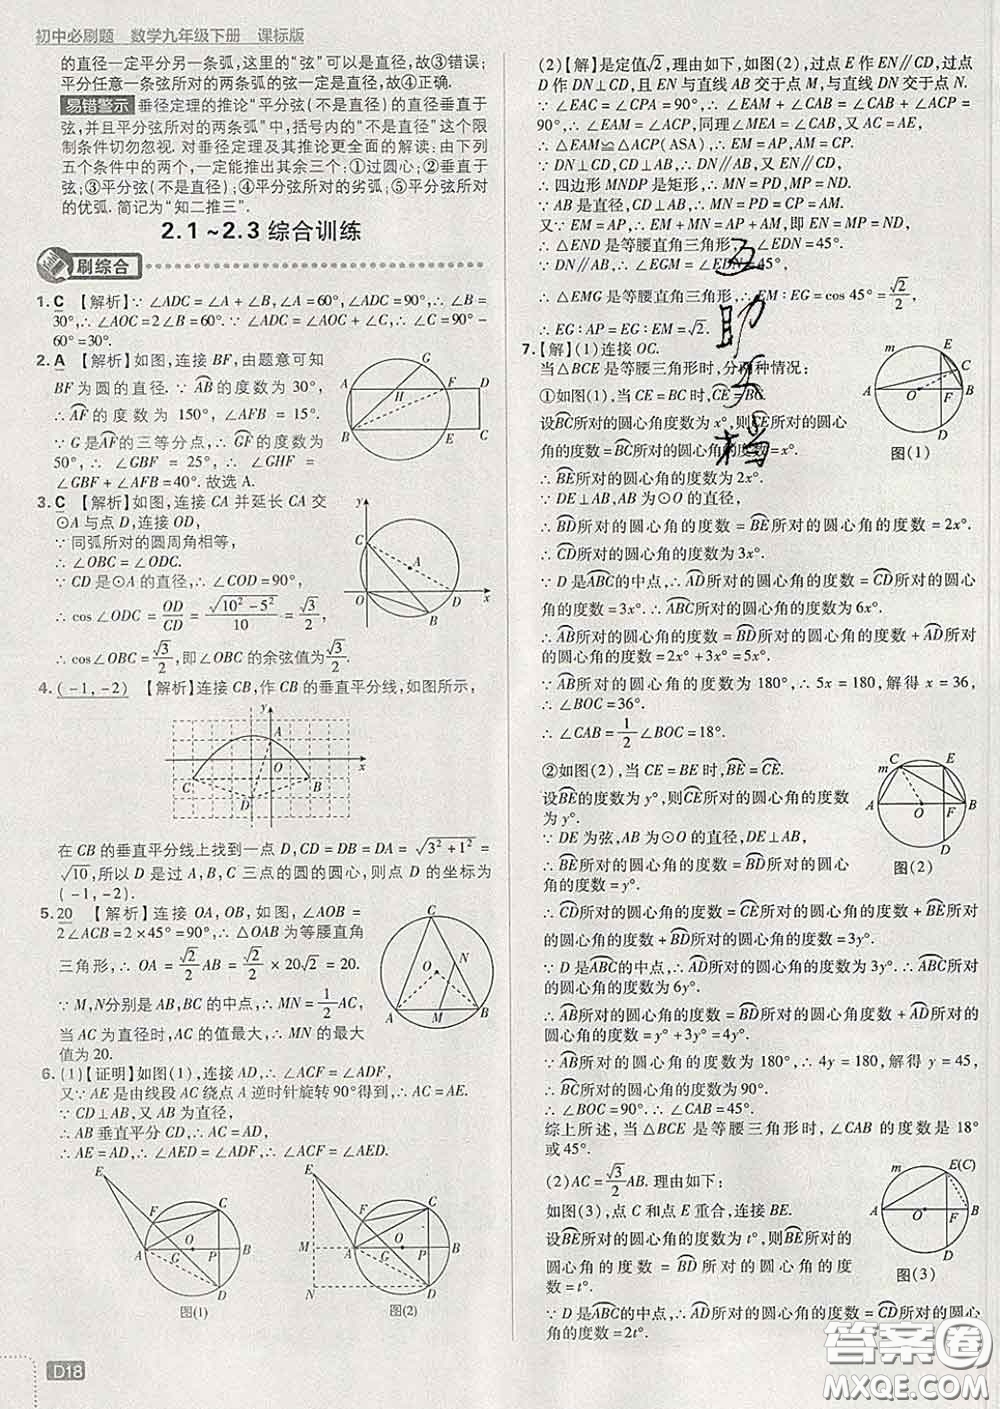 初中必刷题 数学九年级下册 课标版
的直径一定平分另一条弧,这里的“弦”可以是直径,故③错误;
平分任意一条弦所对的两条弧的弦一定是直径,故④正确.
易错警示 垂径定理的推论“平分弦(不是直径)的直径垂直于
弦,并且平分弦所对的两条弧”中,括号内的“不是直径”这个限
制条件切勿忽视. 对垂径定理及其推论更全面的解读:由下列
五个条件中的两个,一定能推出其余三个:①过圆心;②垂直于
弦;③平分弦(不是直径);④平分弦所对的劣弧;⑤平分弦所对
的优弧. 简记为“知二推三”.
2.1~2.3综合训练
刷综合
1. C 【解析】∵ ∠ADC = ∠A + ∠B, ∠A = 60°, ∠ADC = 90°, ∴ ∠B =
30°, ∴ ∠AOC = 2∠B = 60°. ∵ ∠ADC = ∠AOC + ∠C, ∴ ∠C = 90° -
60° = 30°.
2. A 【解析】如图,连接 BF,由题意可知
BF 为圆的直径. ∵ AB的度数为 30°,
∴ AF的度数为 150°, ∠AFB = 15°.
∵ G 是AF的三等分点, ∴ GF的度数为
50°, ∴ ∠GBF = 25°. ∴ ∠GHF =
∠GBF + ∠AFB = 40°. 故选 A.
A G F D H B E C
3. C 【解析】如图,连接 CA 并延长 CA 交
⊙A 与点 D,连接 OD,
∵ 同弧所对的圆周角相等,
∴ ∠OBC = ∠ODC.
∵ CD 是⊙A 的直径, ∴ ∠COD = 90°.
∴ cos∠ODC = OD/CD = √(10² - 5²)/10 = √3/2,
∴ cos∠OBC = √3/2, 即∠OBC 的余弦值为√3/2.
y C A O B D x
4. (-1, -2) 【解析】连接 CB,作 CB 的垂直平分线,如图所示,
y A x C B D
在 CB 的垂直平分线上找到一点 D, CD = DB = DA = √(3² + 1²) =
√10, 所以 D 是过 A, B, C 三点的圆的圆心, 则点 D 的坐标为
(-1, -2).
5. 20 【解析】连接 OA, OB, 如图, ∠AOB =
2∠ACB = 2×45° = 90°, ∴ △OAB 为等腰直角
三角形, ∴ OA = √2/2 AB = √2/2 × 20√2 = 20.
∵ M, N分别是 AB, BC 的中点, ∴ MN = 1/2 AC,
当 AC 为直径时, AC 的值最大, ∴ MN 的最大
值为 20.
C N O A M B
6. (1)【证明】如图(1),连接 AD, ∴ ∠ACF = ∠ADF,
又∵ AE 是由线段 AC 绕点 A 逆时针旋转 90°得到, ∴ AC = AE.
∵ CD⊥AB, 又 AB 为直径,
∴ AB 垂直平分 CD, ∴ AC = AD.
∴ AE = AD, ∴ ∠AED = ∠ADF, ∴ ∠ACF = ∠AED.
E F C A G O P B D
图(1)
E F C M A G O P B N D
图(2)
D18
(2)【解】是定值√2, 理由如下, 如图(2), 过点 E 作 EN∥CD, 过点
D 作 DN⊥CD, 且 EN 与直线 AB 交于点 M, 与直线 DN 交于点 N.
∵ ∠EAC = ∠CPA = 90°, ∴ ∠EAM + ∠CAB = ∠CAB + ∠ACP =
90°, ∴ ∠EAM = ∠ACP, 同理∠MEA = ∠CAB, 又∵ AC = AE,
∴ △EAM≌△ACP(ASA), ∴ EM = AP, AM = CP.
∵ DN⊥CD, CD⊥AB, ∴ DN∥AB, 又∵ EN∥CD,
∴ 四边形 MNDP 是矩形, ∴ MN = PD, MP = DN.
∵ AB 是直径, CD⊥AB, ∴ CP = PD, ∴ MN = PD = CP = AM.
又∵ EM = AP, ∴ EM + MN = AP + AM, 即 EN = MP = DN,
∴ △END 是等腰直角三角形, ∴ ∠EDN = 45°.
∵ DN∥AB, ∴ ∠EGM = ∠EDN = 45°,
∴ △EMG 是等腰直角三角形, ∴ EM:EG = cos 45° = √2/2,
∴ EG:AP = EG:EM = √2.
7. 【解】(1)连接 OC.
当△BCE 是等腰三角形时,分两种情况:
①如图(1),当 CE = BC 时, CE = BC.
设BC所对的圆心角度数为 x°, 则CE所对的圆心
角的度数 = BC所对的圆心角的度数 = x°.
∴ BE所对的圆心角的度数为 2x°.
∵ DE⊥AB, AB 为⊙O 的直径,
∴ BD所对的圆心角的度数 = BE所对的圆心角的度数 = 2x°.
∴ CD所对的圆心角的度数为 3x°.
∵ D 是ABC的中点, ∴ AD所对的圆心角的度数 = CD所对的圆心
角的度数 = 3x°. ∴ ABC所对的圆心角的度数为 6x°.
∴ AB所对的圆心角的度数 = BD所对的圆心角的度数 + AD所对
的圆心角的度数 = 2x° + 3x° = 5x°.
∵ AB所对的圆心角的度数为 180°, ∴ 5x = 180, 解得 x = 36,
∴ ∠BOC = 36°.
∴ ∠CAB = 1/2 ∠BOC = 18°.
m E C A O F B D
图(1)
②如图(2),当 CE = BE 时, BE = CE.
设BE的度数为 y°, 则CE所对的圆心角的度数
为 y°.
∵ DE 为弦, AB 为⊙O 的直径, DE⊥AB,
∴ BE所对的圆心角的度数 = BD所对的圆心角
的度数 = y°.
∴ CD所对的圆心角的度数 = CE所对的圆心角的度数 + BE所对
的圆心角的度数 + BD所对的圆心角的度数 = 3y°.
∵ D 是ABC的中点, ∴ AD所对的圆心角的度数为 3y°. ∴ ABC所对
的圆心角的度数为 6y°.
∴ AB所对的圆心角的度数 = BD所对的圆心角的度数 + AD所对
的圆心角的度数 = y° + 3y° = 4y°.
∵ AB所对的圆心角的度数为 180°, ∴ 4y = 180, 解得 y = 45,
∴ BC所对的圆心角的度数为 90°.
∴ ∠BOC = 90°. ∴ ∠CAB = 45°.
综上所述, 当△BCE 是等腰三角形时, ∠CAB 的度数是 18°
或 45°.
C E m A O F B D
图(2)
(2)AC = √3/2 AB. 理由如下:
如图(3),点 C 和点 E 重合,连接 BE.
设BE所对的圆心角的度数为 t°, 则BE所对的圆
心角的度数 = BD所对的圆心角的度数 = t°.
∴ DE所对的圆心角的度数为 2t°.
∵ D 是ABC的中点, ∴ AD所对的圆心角的度数 = CD所对的圆心
角的度数 = 2t°.
m E(C) A O F B D
图(3)
互
助
文
档
答案圈
MXQE.COM